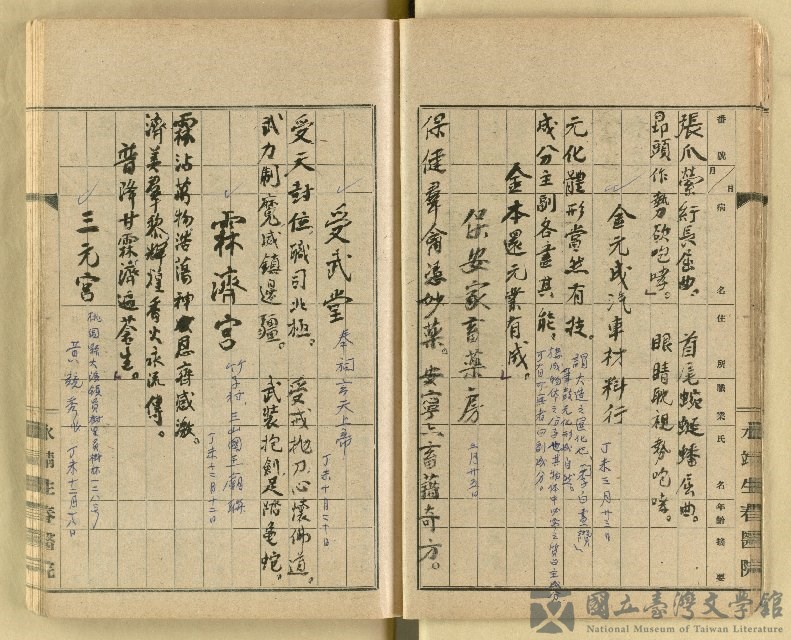 番號
月 日
病名
住所
職業
氏名
年齡
摘要
張爪縈紆長屈曲。 首尾蜿蜒蟠屈曲。
昂頭作勢欲咆哮」。 眼睛眈視勢咆哮。
金元成汽車材料行 丁未三月廿三日
元化體形當然有技。
成分主副各盡其能
金本還元業有成。」
保安家畜藥房 三月廿五日
保健羣禽憑妙藥。安寧六畜藉奇方。
永靖生春醫院
受武堂 奉祠玄天上帝
丁未十月二十日
受天封位職司北極。 受戒拋刀心懷佛道。
武力制魔威鎮邊疆。 武裝抱劍足踏龜蛇。
霖濟宮 竹子村三山國王廟聯
丁未十二月十二日
霖沾萬物浩蕩神恩齊感激。
濟美羣黎輝煌香火永流傳。
普降甘霖濟
蒼生。」
三元宮
桃園縣大溪鎮員樹
號
黃鏡
丁未十二月
永靖生春醫院
國立臺灣文學館
National Museum of Taiwan Literature